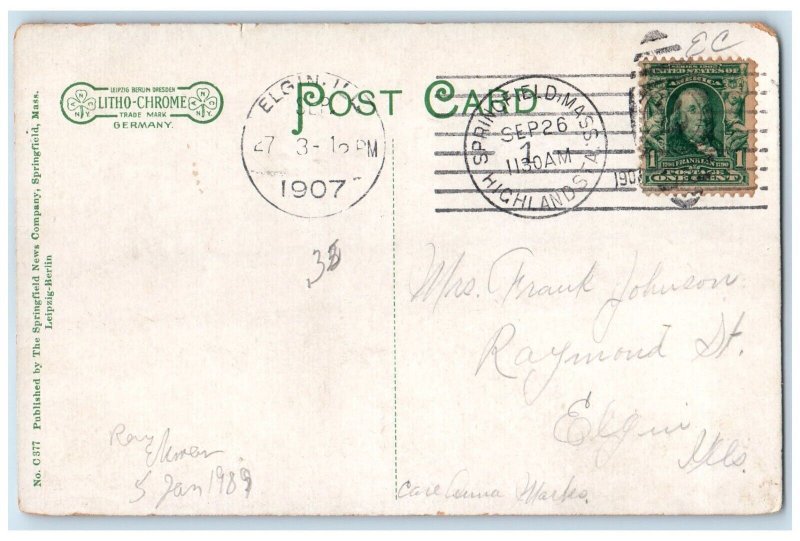 EC
LEIPZIG BERLIN DRESDEN
LITHO-CHROME
TRADE MARK
GERMANY.
POST CARD
ELGIN, ILL.
SEP
27 3-15 PM
1907
SPRINGFIELD, MASS.
SEP 26
11 30 AM
1
HIGHLAND STA.
190
UNITED STATES OF
AMERICA
1 FRANKLIN 1
POSTAGE
ONE CENT
Mrs. Frank Johnson
Raymond St.
Elgin
Ills.
Care Anna Marks.
Ray
5 Jan 1989
No. C 377 Published by The Springfield News Company, Springfield, Mass.
Leipzig-Berlin